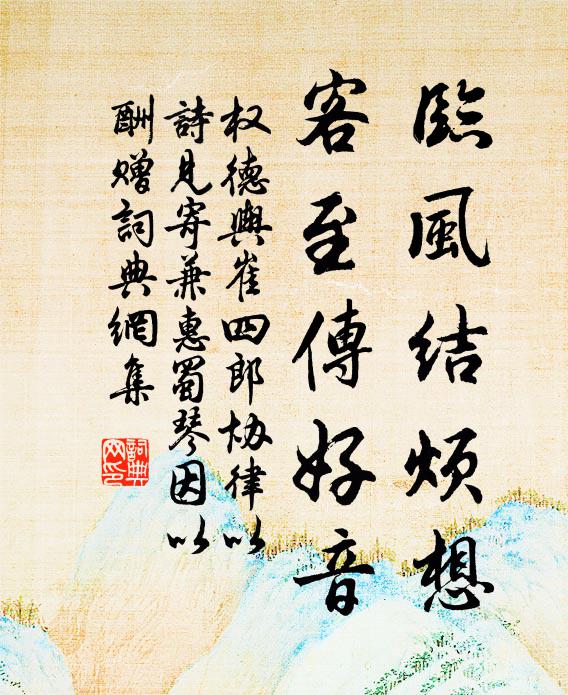 臨風結煩想
客至傳好音
权德輿崔四郎协律以
詩見寄兼惠蜀琴因以
酬赠詞典網集
詞典網印